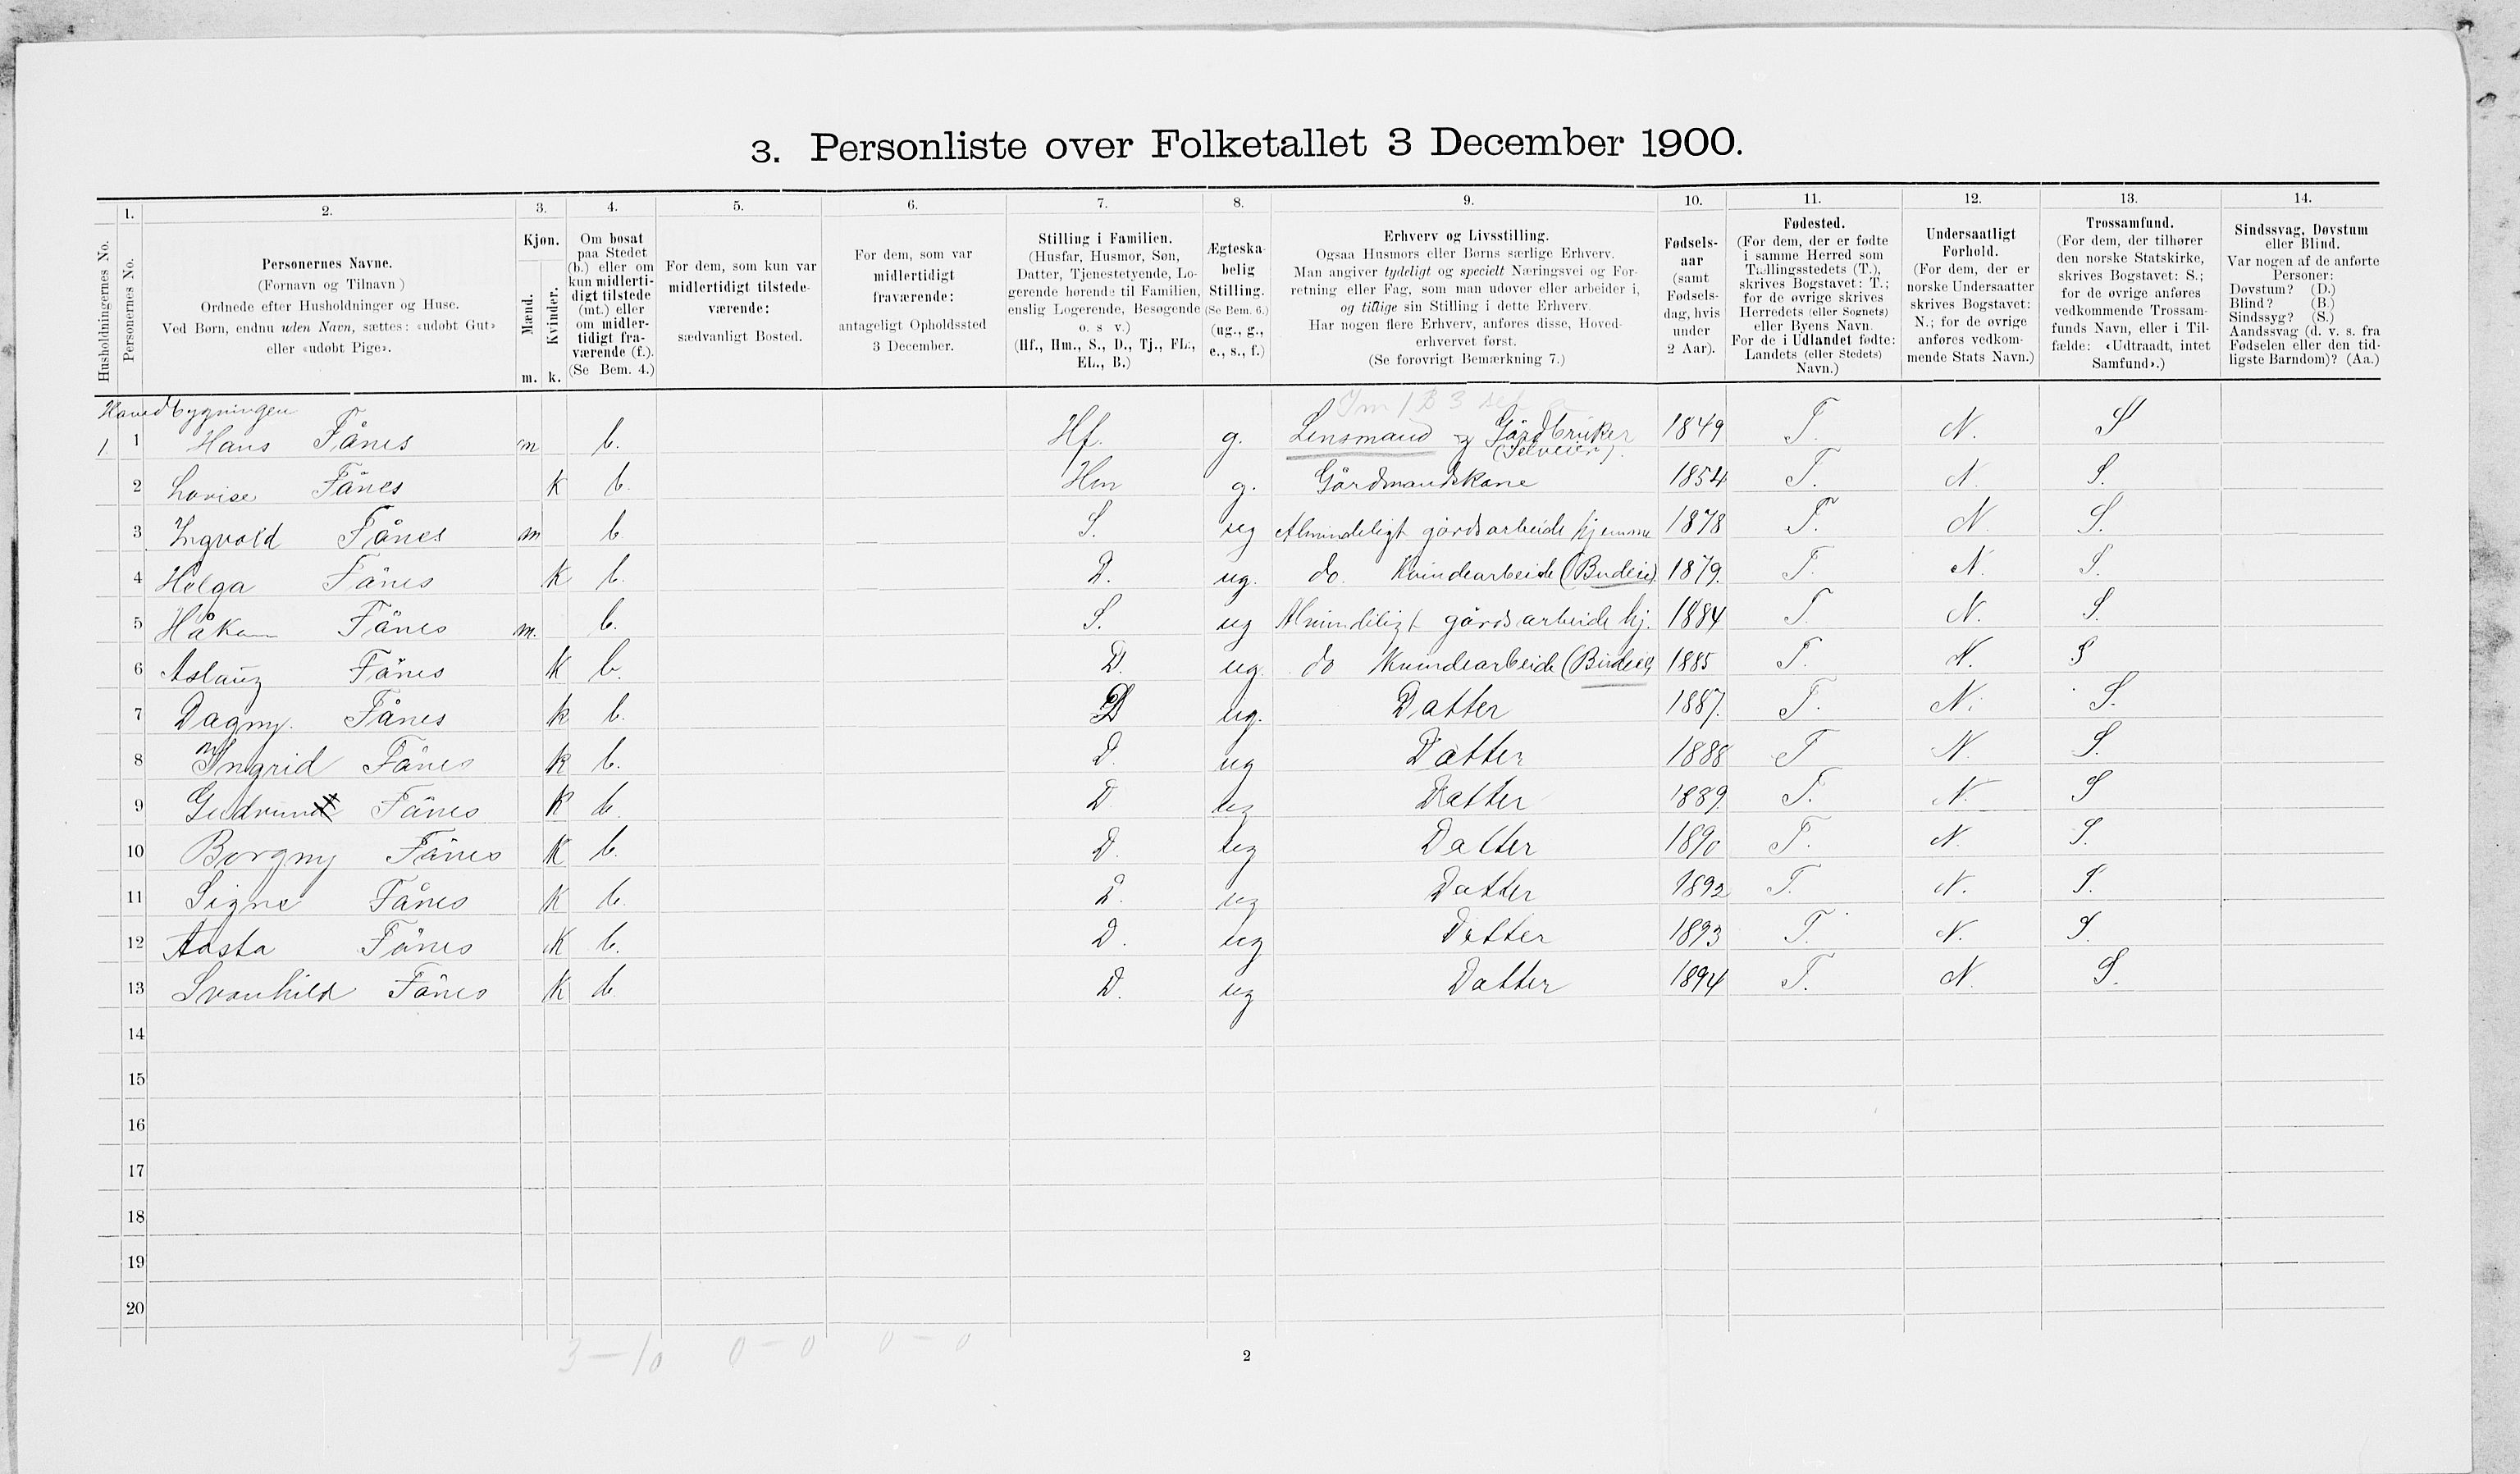 3. Personliste over Folketallet 3 December 1900.
1. 2. 3. 4. 5. 6. 7. 8. 9. 10. 11. 12. 13. 14.
Husholdningernes No.
Personernes No.
Personernes Navne.
(Fornavn og Tilnavn)
Ordnede efter Husholdninger og Huse.
Ved Børn, endnu uden Navn, sættes: «udøbt Gut»
eller «udøbt Pige».
Kjøn.
Mænd.
Kvinder.
m. k.
Om bosat
paa Stedet
(b.) eller om
kun midlerti-
digt tilstede
(mt.) eller
om midler-
tidigt fra-
værende (f.).
(Se Bem. 4.)
For dem, som kun var
midlertidigt tilstede-
værende:
sædvanligt Bosted.
For dem, som var
midlertidigt
fraværende:
antageligt Opholdssted
3 December.
Stilling i Familien.
(Husfar, Husmor, Søn,
Datter, Tjenestetyende, Lo-
gerende hørende til Familien,
enslig Logerende, Besøgende
o. s v.)
(Hf., Hm., S., D., Tj., FL.,
EL., B.)
Ægteska-
belig
Stilling.
(Se Bem. 6.)
(ug., g.,
e., s., f.)
Erhverv og Livsstilling.
Ogsaa Husmors eller Børns særlige Erhverv.
Man angiver tydeligt og specielt Næringsvei og For-
retning eller Fag, som man udøver eller arbeider i,
og tillige sin Stilling i dette Erhverv.
Har nogen flere Erhverv, anføres disse, Hoved-
erhvervet først.
(Se forøvrigt Bemærkning 7.)
Fødsels-
aar
(samt
Fødsels-
dag, hvis
under
2 Aar).
Fødested.
(For dem, der er fødte
i samme Herred som
Tællingsstedets (T.),
skrives Bogstavet: T.;
for de øvrige skrives
Herredets (eller Sognets)
eller Byens Navn.
For de i Udlandet fødte:
Landets (eller Stedets)
Navn.)
Undersaatligt
Forhold.
(For dem, der er
norske Undersaatter
skrives Bogstavet:
N.; for de øvrige
anføres vedkom-
mende Stats Navn.)
Trossamfund.
(For dem, der tilhører
den norske Statskirke,
skrives Bogstavet: S.;
for de øvrige anføres
vedkommende Trossam-
funds Navn, eller i Til-
fælde: «Udtraadt, intet
Samfund».)
Sindssvag, Døvstum
eller Blind.
Var nogen af de anførte
Personer:
Døvstum? (D.)
Blind? (B.)
Sindssyg? (S.)
Aandssvag (d. v. s. fra
Fødselen eller den tid-
ligste Barndom)? (Aa.)
Hovedbygningen
1 1 Hans Fånes m b. Hf. g. Lensmand og Gårdbruker (Selveier). 1849 T. N. S
2 Lovise Fånes K b. Hm g. Gårdmandskone 1854 T. N. S.
3 Ingvald Fånes m b S. ug Almindeligt gårdsarbeide hjemme 1878 T. N S.
4 Helga Fånes K b. D. ug. do. Kvindearbeide (Budeie) 1879. T. N. S.
5 Håkon Fånes m. b. S. ug Almindeligt gårdsarbeide hj. 1884 T N. S.
6 Aslaug Fånes K b. D. ug. do Kvindearbeide (Budeie) 1885 T. N. S
7 Dagny. Fånes K b. D ug. Datter 1887. T. N. S.
8 Ingrid Fånes K b. D. ug Datter 1888 T N. S.
9 Gudrun Fånes K b. D ug Datter 1889. T. N. S
10 Borgny Fånes K b. D. ug Datter 1890 T. N. S.
11 Signe Fånes K b. D. ug Datter 1892 T. N. S.
12 Aasta Fånes K b. D. ug Datter 1893 T. N. S.
13 Svanhild Fånes K b. D. ug Datter 1894 T. N. S.
14
15
16
17
18
19
20
3 — 10 0 — 0 0 — 0
2